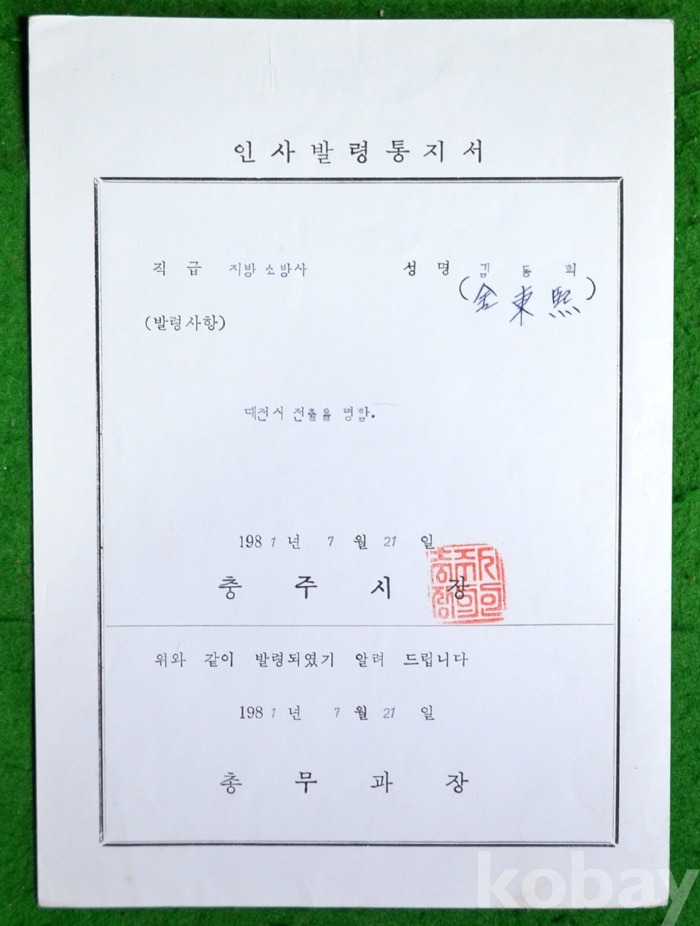 인사발령통지서
직 급 지방 소방사 성 명 김 동 희
(金東熙)
(발령사항)
대전시 전출을 명함.
1981년 7월 21일
충 주 시 장
충주시장의인
위와 같이 발령되였기 알려 드립니다
1981년 7월 21일
총 무 과 장
kobay